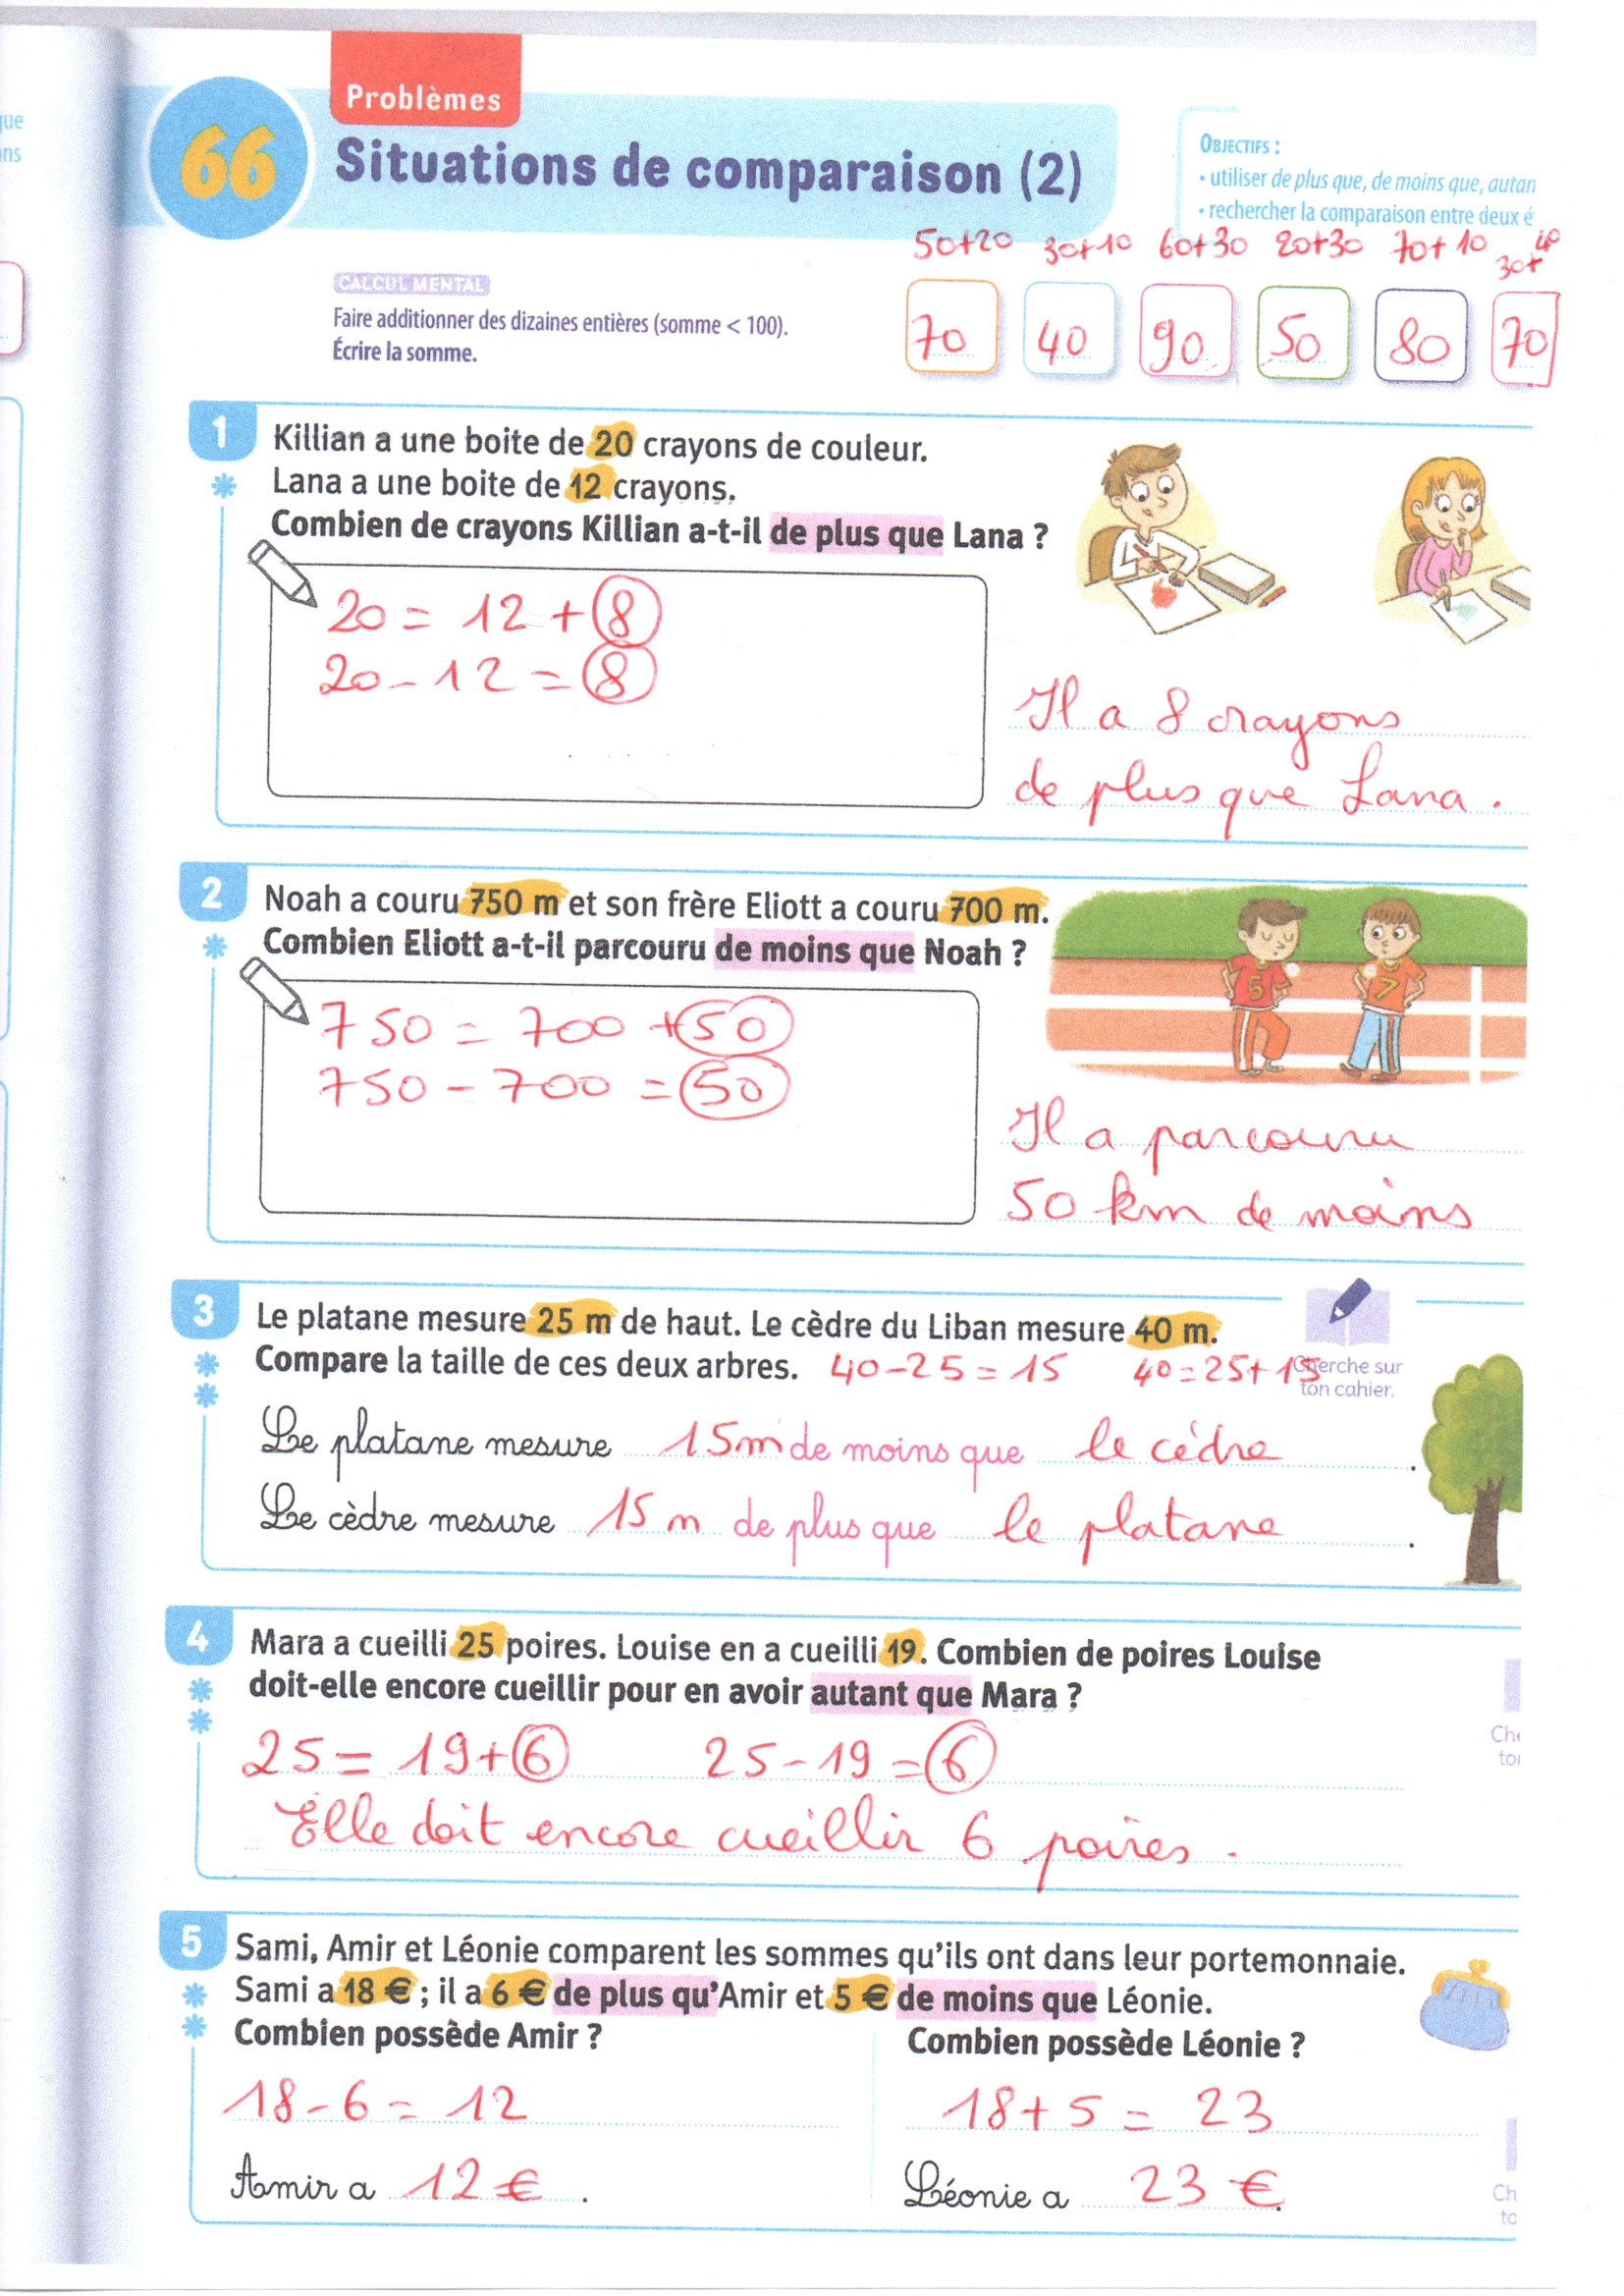 que
ns
Problèmes
66
Situations de comparaison (2)
OBJECTIFS :
• utiliser de plus que, de moins que, autan
• rechercher la comparaison entre deux é
50+20 30+10 60+30 20+30 70+10 30+40
CALCUL MENTAL
Faire additionner des dizaines entières (somme < 100).
Écrire la somme.
70 40 90 50 80 70
1
Killian a une boite de 20 crayons de couleur.
Lana a une boite de 12 crayons.
Combien de crayons Killian a-t-il de plus que Lana ?
20 = 12 + 8
20 - 12 = 8
Il a 8 crayons
de plus que Lana.
2
Noah a couru 750 m et son frère Eliott a couru 700 m.
Combien Eliott a-t-il parcouru de moins que Noah ?
5 7
750 = 700 + 50
750 - 700 = 50
Il a parcouru
50 km de moins
3
Le platane mesure 25 m de haut. Le cèdre du Liban mesure 40 m.
Compare la taille de ces deux arbres. 40-25=15 40=25+15
Cherche sur
ton cahier.
Le platane mesure 15m de moins que le cèdre.
Le cèdre mesure 15 m de plus que le platane.
4
Mara a cueilli 25 poires. Louise en a cueilli 19. Combien de poires Louise
doit-elle encore cueillir pour en avoir autant que Mara ?
Che
ton
25 = 19+6 25-19=6
Elle doit encore cueillir 6 poires.
5
Sami, Amir et Léonie comparent les sommes qu'ils ont dans leur portemonnaie.
Sami a 18 € ; il a 6 € de plus qu'Amir et 5 € de moins que Léonie.
Combien possède Amir ?
18-6 = 12
Amir a 12 €.
Combien possède Léonie ?
18+5 = 23
Léonie a 23 €.
Ch
to